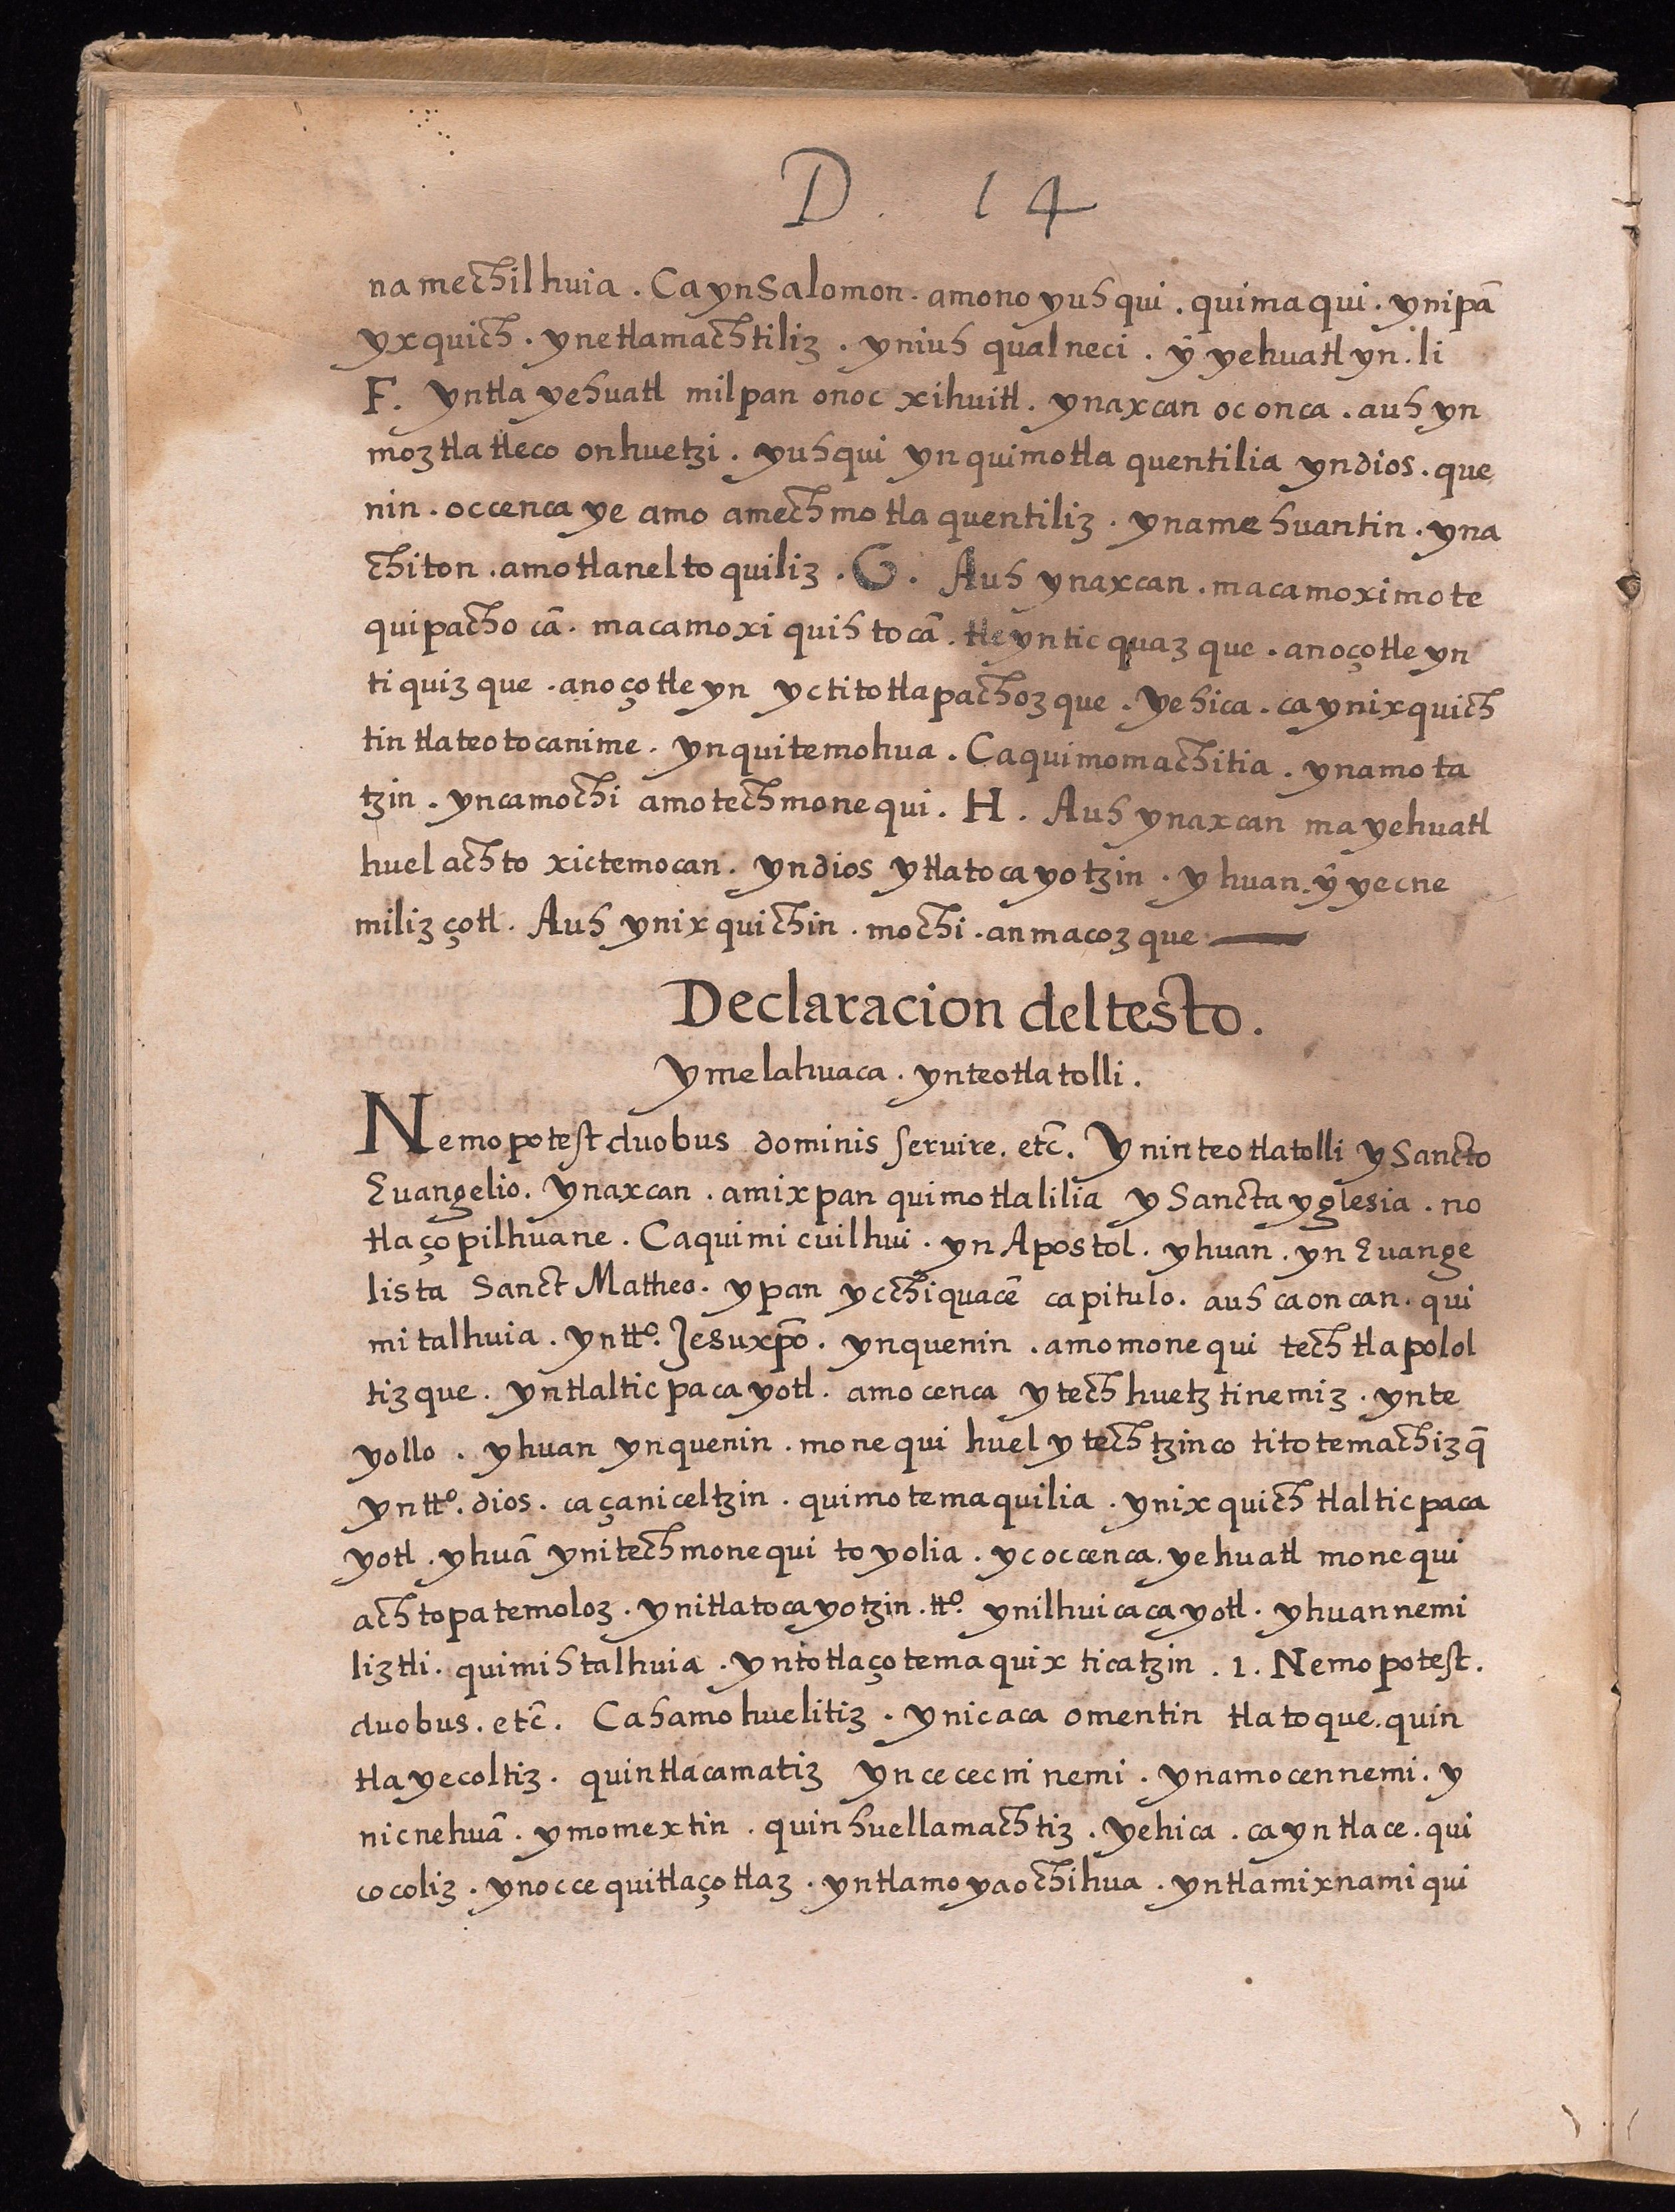 D. 14
namechilhuia. Ca ynSalomon. amono yuhqui. quimaqui. ynipā
yxquich. ynetlamachtiliz. yniuh qualneci. ȳ yehuatl yn. li
F. yntla yehuatl milpan onoc xihuitl. ynaxcan oc onca. auh yn
moztla tleco onhuetzi. yuhqui ynquimotla quentilia yndios. que
nin. occenca ye amo amechmotla quentiliz. yname huantin. yna
chiton. amotlaneltoquiliz. G. Auh ynaxcan. macamoximote
quipacho cā. macamoxi quihtocā. tle yntic quazque. anoçotle yn
tiquizque. anoçotle yn yctitotlapachozque. yehica. ca ynixquich
tin tlateotocanime. ynquitemohua. Caquimomachitia. ynamota
tzin. yncamochi amotechmonequi. H. Auh ynaxcan ma yehuatl
huel achto xictemocan. yndios ytlatocayotzin. yhuan. ȳ yecne
milizçotl. Auh ynixquichin. mochi. anmacozque
Declaracion deltesto.
ymelahuaca. ynteotlatolli.
Nemo potest duobus dominis seruire. etc̄. Yninteotlatolli ySancto
Euangelio. ynaxcan. amixpan quimotlalilia ySancta yglesia. no
tlaçopilhuane. Caquimicuilhui. yn Apostol. yhuan. yn Euange
lista Sanct Matheo. ypan ycchiquacē capitulo. auh caoncan. qui
mitalhuia. ynttº. Jesuxp̄o. ynquenin. amomonequi tech tlapolol
tizque. yntlalticpacayotl. amo cenca ytech huetztinemiz. ynte
yollo. yhuan ynquenin. monequi huel ytechtzinco titotemachizq̄
ynttº. dios. caçaniceltzin. quimotemaquilia. ynixquich tlalticpaca
yotl. yhuā ynitechmonequi toyolia. yc occenca. yehuatl monequi
achtopatemoloz. ynitlatocayotzin. ttº. ynilhuicacayotl. yhuan nemi
liztli. quimihtalhuia. yntotlaçotemaquixticatzin. 1. Nemo potest.
duobus. etc̄. Cahamohuelitiz. ynicaca omentin tlatoque. quin
tlayecoltiz. quintlacamatiz yncececni nemi. ynamocennemi. y
nicnehuā. ymomextin. quinhuellamachtiz. yehica. ca yntlace. qui
cocoliz. ynocce quitlaçotlaz. yntlamoyaochihua. yntlamixnamiqui